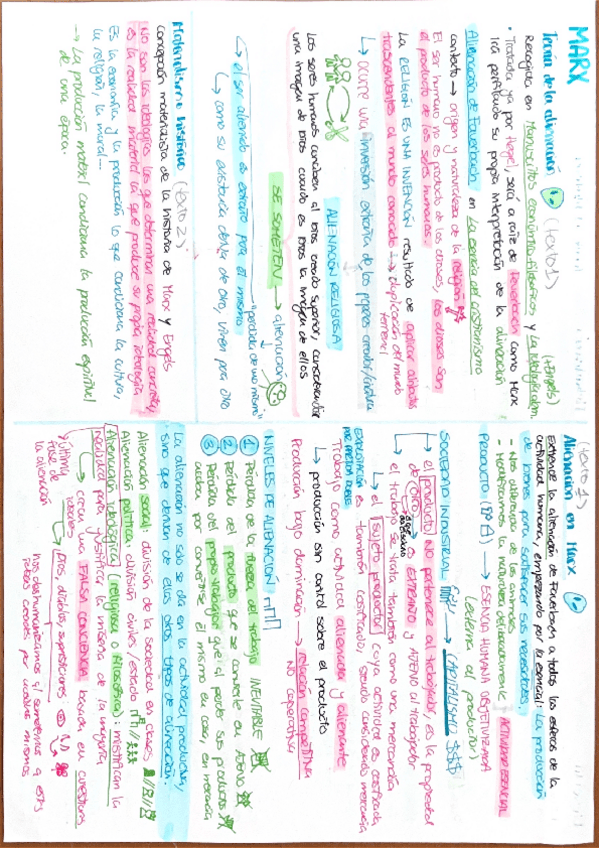 MARX
Teoría de la alienación (texto 1)
(+Engels)
Recogida en Manuscritos económico filosóficos y La ideología alem.
• Tratada ya por Hegel, será a raíz de Feuerbach como Marx
irá perfilando su propia interpretación de la alienación
Alienación de Feuerbach en La esencia del cristianismo
contexto → origen y naturaleza de la religión
El ser humano no es producto de los dioses, los dioses son
el producto de los seres humanos.
La RELIGIÓN ES UNA INVENCIÓN resultado de aplicar atributos
trascendentes al mundo conocido → duplicación del mundo
terrenal
↳ ocurre una inversión extraña de los papeles creador/criatura
ALIENACIÓN RELIGIOSA
Los seres humanos conciben al Dios creado superior, considerándose
una imagen de Dios cuando es Dios la imagen de ellos
SE SOMETEN → alienación
"pérdida de uno mismo"
→ el ser alienado es extraño para él mismo
↳ como su existencia deriva de otro, viven para otro
Materialismo histórico (texto 2)
concepción materialista de la historia de Marx y Engels
NO son las ideologías las que determinan una realidad concreta,
es la realidad material la que produce su propia ideología
Es la economía y la producción lo que condiciona la cultura,
la religión, la moral...
→ La producción material condiciona la producción espiritual
de una época.
(texto 1)
Alienación en Marx
Extiende la alienación de Feuerbach a todas las esferas de la
actividad humana, empezando por la esencial: la producción
de bienes para satisfacer sus necesidades.
- Nos diferencia de los animales
- Modificamos la naturaleza deliberadamente
ACTIVIDAD ESENCIAL
PRODUCTO → ESENCIA HUMANA OBJETIVIZADA
(externa al productor)
SOCIEDAD INDUSTRIAL → CAPITALISMO $$$
↳ el producto NO pertenece al trabajador, es la propiedad
de (OTRO) → es EXTRAÑO y AJENO al trabajador
el trabajo se trata también como una mercancía
↳ el sujeto productor cuya actividad es cosificada
es también cosificado, siendo considerado mercancía
EXPLOTACIÓN
Trabajo como actividad alienada y alienante
↳ producción sin control sobre el producto
Producción bajo dominación → relación competitiva
NO cooperativa
NIVELES DE ALIENACIÓN
1 Pérdida de la fuerza del trabajo INEVITABLE
2 Pérdida del producto que se convierte en AJENO
3 Pérdida del propio trabajador que al perder sus productos
acaba por convertirse él mismo en cosa, en mercancía
La alienación no solo se da en la actividad productiva,
sino que derivan de ella otros tipos de alienación.
Alienación social: división de la sociedad en clases
Alienación política: división civiles/estado
Alienación ideológica (religiosa o filosófica): mistifican la
realidad para justificar la miseria de la mayoría
↳ crean una FALSA CONCIENCIA basada en cuestiones
"última fase de la alienación"
→ Dios, ídolos, supersticiones
nos deshumanizamos al someternos a estos